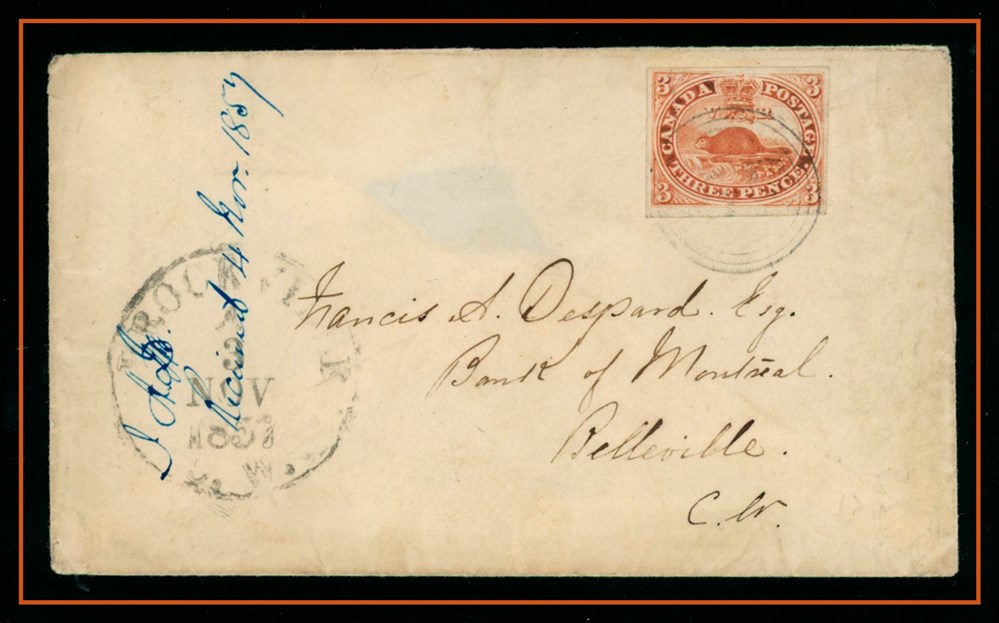 3 CANADA POSTAGE 3
3 THREE PENCE 3
Received 4 Nov. 1857
BROCKVILLE
NOV
1857
C. W.
Francis A. Despard. Esq.
Bank of Montreal.
Belleville.
C. W.